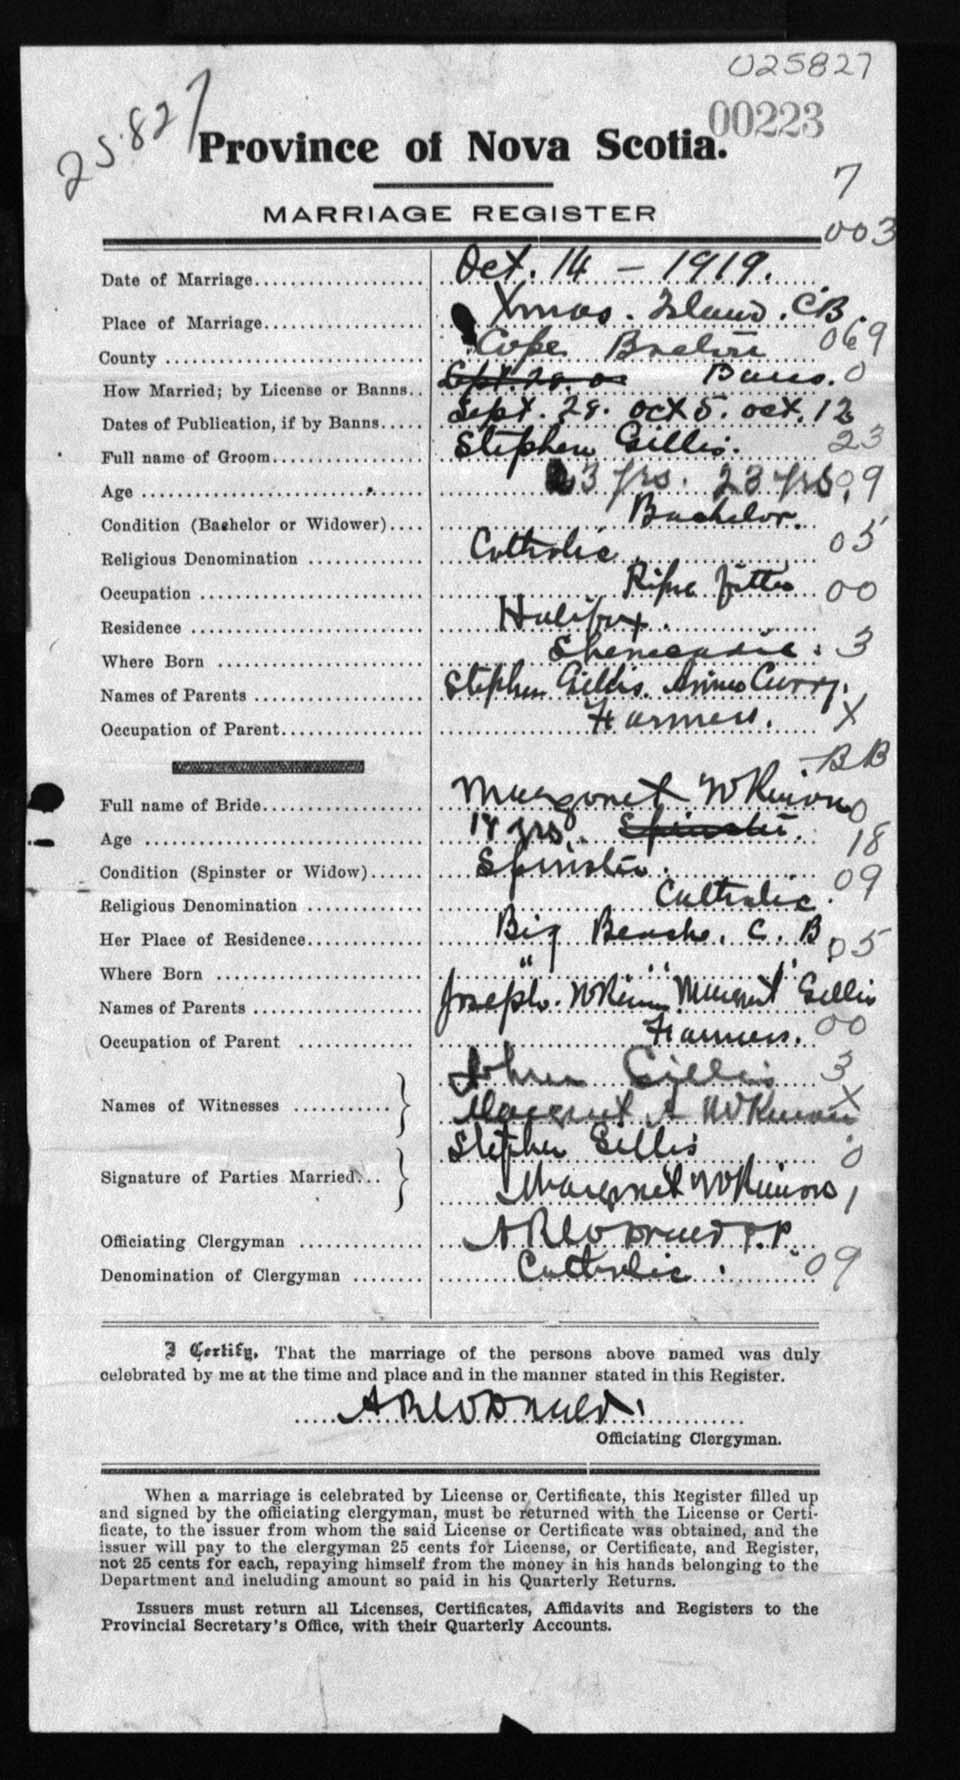 025827
25.827
00223
Province of Nova Scotia.
7
MARRIAGE REGISTER
003
Date of Marriage.................... Oct. 14 – 1919.
Place of Marriage................... Xmas. Island. C.B.
County ............................. Cape Breton 069
How Married; by License or Banns.. Sept. 28. Banns. 0
Dates of Publication, if by Banns..... Sept. 28. oct 5. oct. 12
Full name of Groom.................. Stephen Gillis. 23
Age ................................ 23 yrs. 23 yrs. 09
Condition (Bachelor or Widower).... Bachelor.
Religious Denomination ............. Catholic. 05
Occupation ......................... Pipe fitter 00
Residence .......................... Halifax.
Where Born ......................... Shenacadie. 3
Names of Parents ................... Stephen Gillis. Annie Curry.
Occupation of Parent................ Farmers. X
BB
Full name of Bride.................. Margaret McKinnon 0
Age ................................ 18 yrs. Spinster. 18
Condition (Spinster or Widow)...... Spinster.
Religious Denomination ............. Catholic. 09
Her Place of Residence............. Big Beach. C. B. 05
Where Born ......................... " " "
Names of Parents ................... Joseph. McKinnon Margaret Gillis
Occupation of Parent ............. Farmers. 00
John Gillis 3
Names of Witnesses ........... Margaret A McKinnon X
Stephen Gillis 0
Signature of Parties Married... Margaret McKinnon 1
Officiating Clergyman .............. P.P.
Denomination of Clergyman ........ Catholic. 09
I Certify, That the marriage of the persons above named was duly
celebrated by me at the time and place and in the manner stated in this Register.
Officiating Clergyman.
When a marriage is celebrated by License or Certificate, this Register filled up
and signed by the officiating clergyman, must be returned with the License or Certi-
ficate, to the issuer from whom the said License or Certificate was obtained, and the
issuer will pay to the clergyman 25 cents for License, or Certificate, and Register,
not 25 cents for each, repaying himself from the money in his hands belonging to the
Department and including amount so paid in his Quarterly Returns.
Issuers must return all Licenses, Certificates, Affidavits and Registers to the
Provincial Secretary's Office, with their Quarterly Accounts.